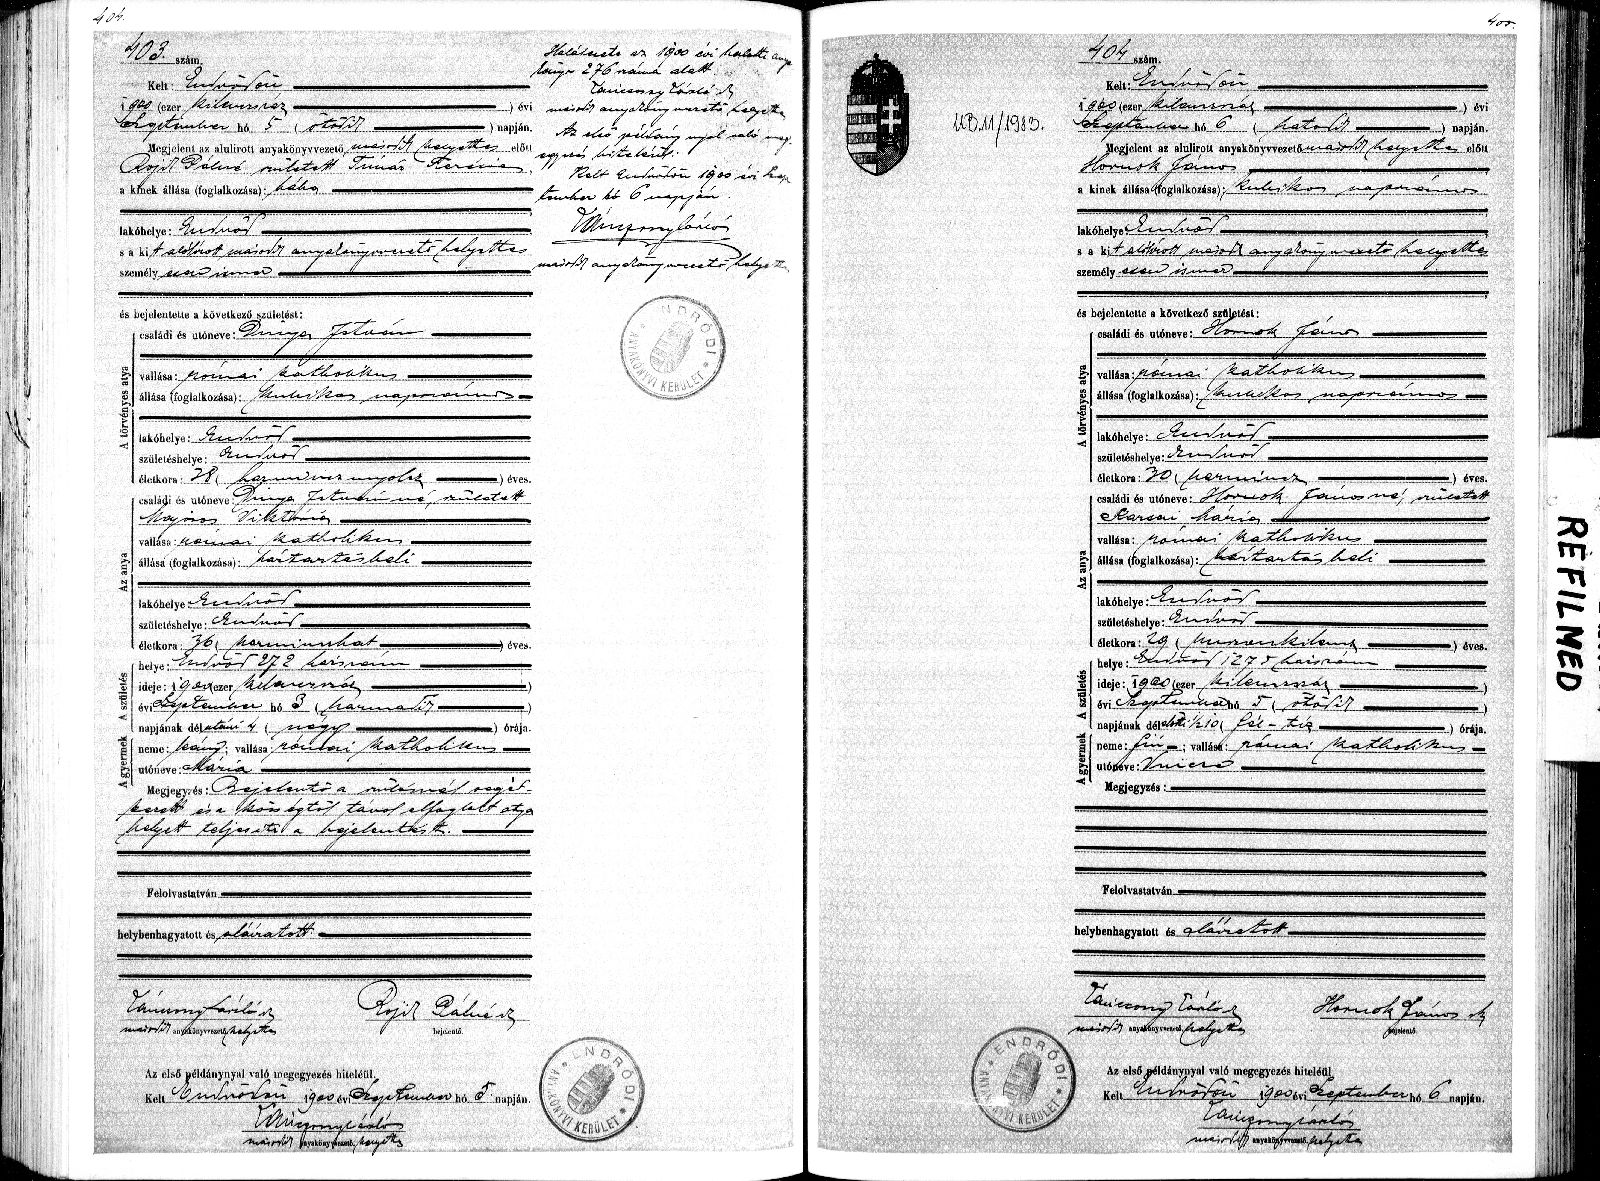 404.
403. szám.
Kelt: Endrődön
1900 (ezer kilenczszáz) évi
Szeptember hó 5 (ötödik) napján.
Megjelent az alulirott anyakönyvvezető, másodk helyettes előtt
Rojik Pálné, született Timár Terézia,
a kinek állása (foglalkozása): bába
lakóhelye: Endrőd
s a kit alólírott másodk anyakönyvvezető helyettes
személyesen ismer
és bejelentette a következő születést:
A törvényes atya
családi és utóneve: Dinya István
vallása: római katholikus
állása (foglalkozása): kubikos napszámos
lakóhelye: Endrőd
születéshelye: Endrőd
életkora: 38 (harmincznyolcz) éves.
Az anya
családi és utóneve: Dinya Istvánné, született
Majoros Viktória
vallása: római katholikus
állása (foglalkozása): háztartásbeli
lakóhelye Endrőd
születéshelye: Endrőd
életkora: 36 (harminczhat) éves.
A születés
helye: Endrőd 272 házszám
ideje: 1900 (ezer kilenczszáz)
évi Szeptember hó 3 (harmadik)
napjának délutáni 4 (négy) órája.
A gyermek
neme: leány; vallása római katholikus
utóneve: Mária
Megjegyzés: Bejelentő a szülésnél segéd-
kezett és a községtől távol elfoglalt atya
helyett teljesíti a bejelentést.
Felolvastatván
helybenhagyatott és aláíratott.
Tánczony László k
másodk anyakönyvvezető, helyettes
Rojik Pálné k
bejelentő.
Az első példánynyal való megegyezés hiteléül.
Kelt Endrődön 1900 évi Szeptember hó 5 napján.
másodk anyakönyvvezető, helyettes
ENDRŐDI
ANYAKÖNYVI KERÜLET
Halálesete az 1900 évi halotti anya
könyv 276 száma alatt
másodk anyakönyvvezető helyettes
Az első példánynyal való meg-
egyezés hiteléül:
Kelt Endrődön 1900 évi Szep
tember hó 6 napján.
másodk anyakönyvvezető helyettes
ENDRŐDI
ANYAKÖNYVI KERÜLET
400.
404 szám.
Kelt: Endrődön
1900 (ezer kilenczszáz) évi
Szeptember hó 6 (hatodik) napján.
Megjelent az alulirott anyakönyvvezető másodk helyettes előtt
Hornok János
a kinek állása (foglalkozása): kubikos napszámos
lakóhelye: Endrőd
s a kit alólírott másodk anyakönyvvezető helyettes
személyesen ismer
és bejelentette a következő születést:
A törvényes atya
családi és utóneve: Hornok János
vallása: római katholikus
állása (foglalkozása): kubikos napszámos
lakóhelye: Endrőd
születéshelye: Endrőd
életkora: 30 (harmincz) éves.
Az anya
családi és utóneve: Hornok Jánosné, született
Karsai Mária
vallása: római katholikus
állása (foglalkozása): háztartásbeli
lakóhelye Endrőd
születéshelye: Endrőd
életkora: 29 (huszonkilencz) éves.
A születés
helye: Endrőd 1275 házszám
ideje: 1900 (ezer kilenczszáz)
évi Szeptember hó 5 (ötödik)
napjának délelőtti 1/210 (fél-tiz) órája.
A gyermek
neme: fiú; vallása: római katholikus
utóneve: Vincze
Megjegyzés:
Felolvastatván
helybenhagyatott és aláíratott
Tánczony László k
másodk anyakönyvvezető, helyettes
Hornok János sk
bejelentő.
Az első példánynyal való megegyezés hiteléül.
Kelt Endrődön 1900 évi Szeptember hó 6 napján.
másodk anyakönyvvezető, helyettes
ENDRŐDI
ANYAKÖNYVI KERÜLET
UB.11/1983.
REFILMED